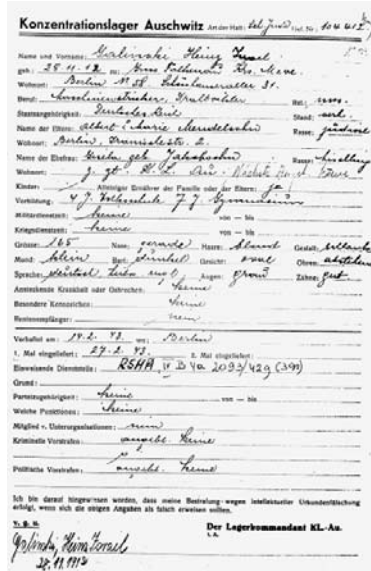 Konzentrationslager Auschwitz Art der Haft: Gef. Nr.: 104 412
Name und Vorname: Galinski Heinz Israel
geb.: 28.11.12 zu: Krs. Meve.
Wohnort: Berlin N 58. Schönhauserallee 31.
Beruf: Rel.: mos.
Staatsangehörigkeit: Deutsches Reich Stand: verh.
Name der Eltern: Albert Marie Mendelsohn Rasse: jüdisch
Wohnort: Berlin, 2.
Name der Ehefrau: geb. Rasse:
Wohnort: z. Zt. K. L. Au.
Kinder: Alleiniger Ernährer der Familie oder der Eltern: ja
Vorbildung: 4 J. Volksschule 7 J. Gymnasium
Militärdienstzeit: keine von — bis
Kriegsdienstzeit: keine von — bis
Grösse: 165 Nase: gerade Haare: Gestalt:
Mund: klein Bart: Gesicht: oval Ohren: abstehend
Sprache: deutsch, engl Augen: grau Zähne: gut
Ansteckende Krankheit oder Gebrechen: keine
Besondere Kennzeichen: keine
Rentenempfänger: nein
Verhaftet am: 14.2. 43. wo: Berlin
1. Mal eingeliefert: 27.2. 43. 2. Mal eingeliefert:
Einweisende Dienststelle: RSHA IV B 4a 2093/42g (391)
Grund:
Parteizugehörigkeit: keine von — bis
Welche Funktionen: keine
Mitglied v. Unterorganisationen: nein
Kriminelle Vorstrafen: angebl. keine
Politische Vorstrafen: angebl. keine
Ich bin darauf hingewiesen worden, dass meine Bestrafung wegen intellektueller Urkundenfälschung
erfolgt, wenn sich die obigen Angaben als falsch erweisen sollten.
v. g. u. Der Lagerkommandant KL.-Au.
I. A.
Galinski, Heinz Israel
28.11.1912